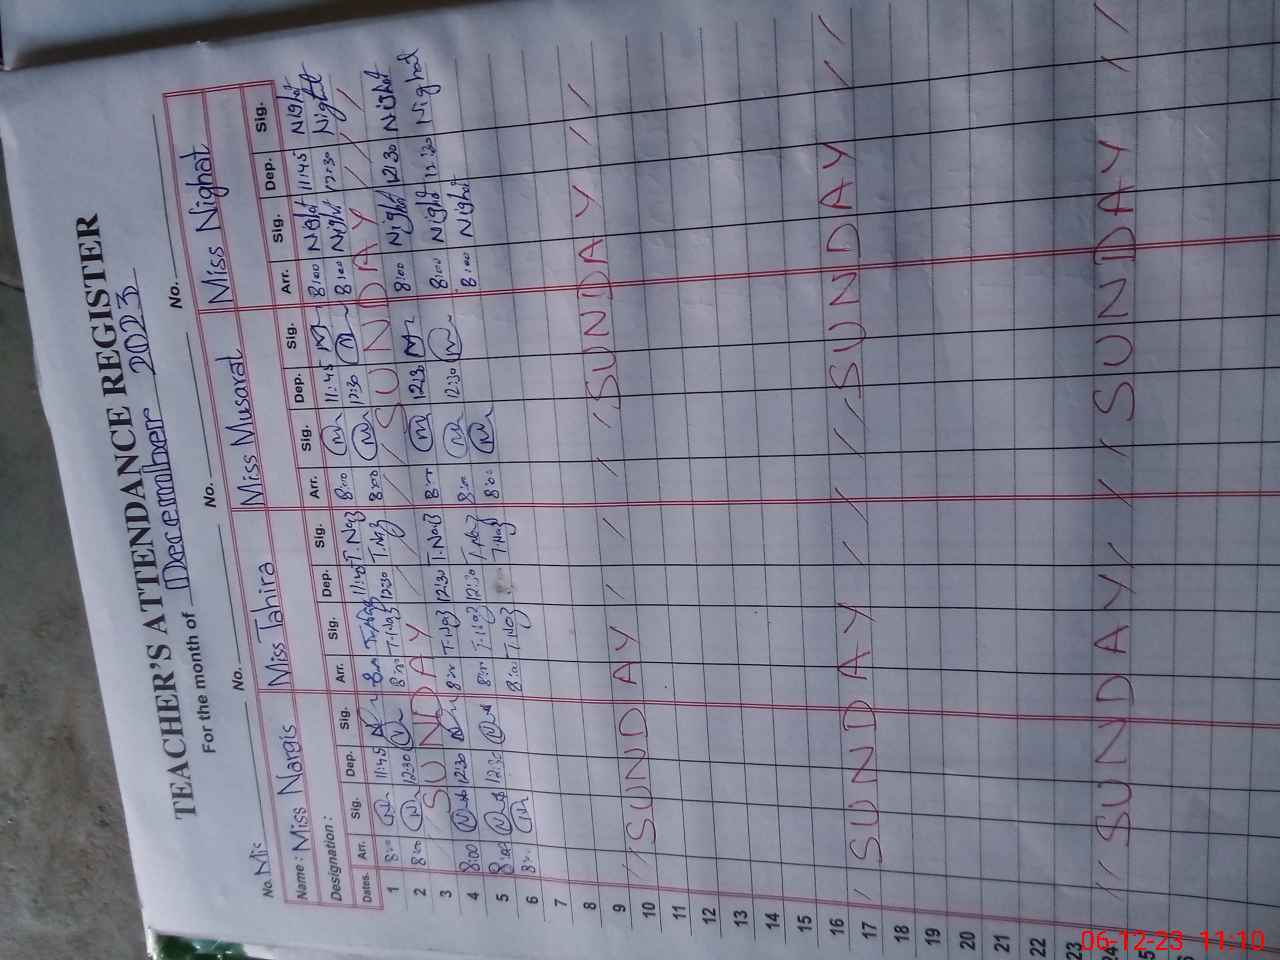 TEACHER'S ATTENDANCE REGISTER
For the month of December 2023
No. Mis No. No. No.
Name: Miss Nargis Miss Tahira Miss Musarat Miss Nighat
Designation:
Dates. Arr. Sig. Dep. Sig. Arr. Sig. Dep. Sig. Arr. Sig. Dep. Sig. Arr. Sig. Dep. Sig.
1 8:00 11:45 T.Naz 11:45 T.Naz 8:00 11:45 8:00 Nighat 11:45 Nighat
2 8:00 12:30 8:00 T.Naz 12:30 T.Naz 8:00 12:30 8:00 Nighat 12:30 Nighat
3 / SUNDAY / / SUNDAY / / /
4 8:00 12:30 8:00 T.Naz 12:30 T.Naz 8:00 12:30 8:00 Nighat 12:30 Nighat
5 8:00 12:30 8:00 T.Naz 12:30 T.Naz 8:00 12:30 8:00 Nighat 12:30 Nighat
6 8:00 8:00 T.Naz T.Naz 8:00 8:00 Nighat
7
8
9
10 / / SUNDAY / / / / / SUNDAY / /
11
12
13
14
15
16
17 / SUNDAY / / / / SUNDAY / /
18
19
20
21
22
23
24 / / SUNDAY / / / / SUNDAY / /
06-12-23 11:10